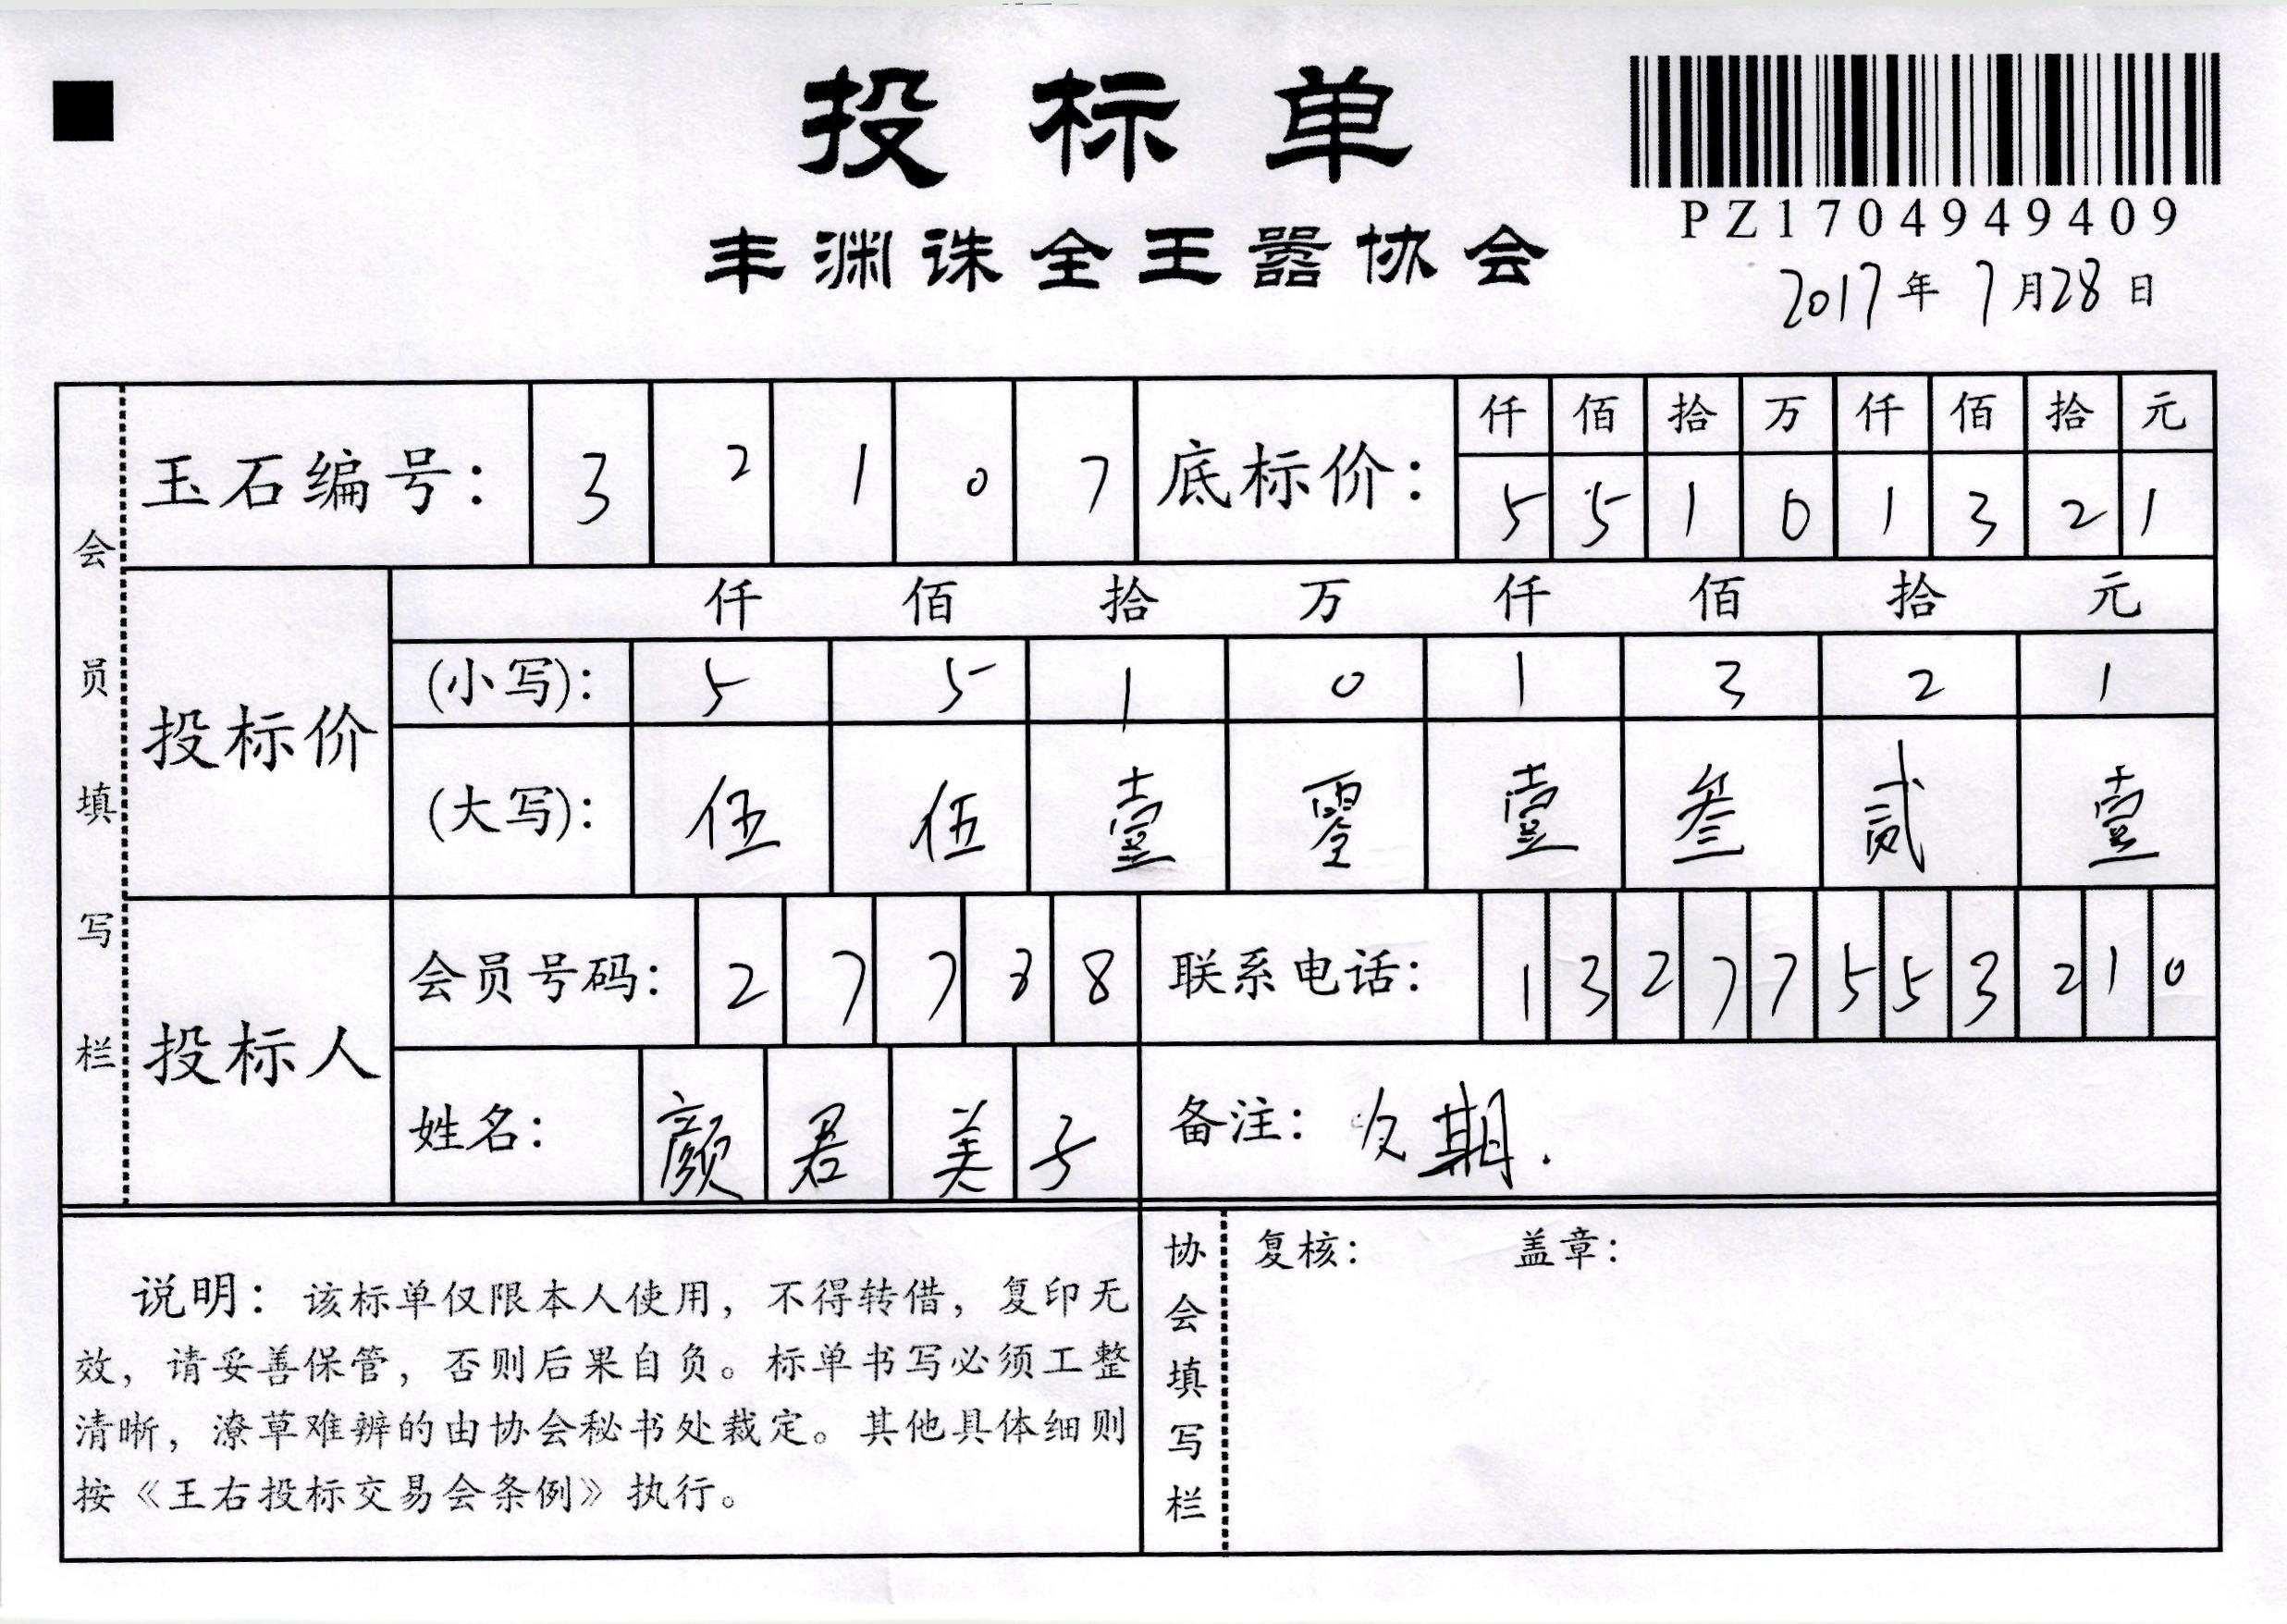 投标单
丰渊诛全王嚣协会
PZ1704949409
2017年7月28日
会员填写栏
玉石编号： 3 2 1 0 7 底标价： 仟 佰 拾 万 仟 佰 拾 元
5 5 1 0 1 3 2 1
投标价
仟 佰 拾 万 仟 佰 拾 元
(小写)： 5 5 1 0 1 3 2 1
(大写)： 伍 伍 壹 零 壹 叁 贰 壹
投标人
会员号码： 2 7 7 3 8 联系电话： 1 3 2 7 7 5 5 3 2 1 0
姓名： 颜 君 美 子 备注： 期.
说明：该标单仅限本人使用，不得转借，复印无
效，请妥善保管，否则后果自负。标单书写必须工整
清晰，潦草难辨的由协会秘书处裁定。其他具体细则
按《王右投标交易会条例》执行。
协会填写栏
复核： 盖章：